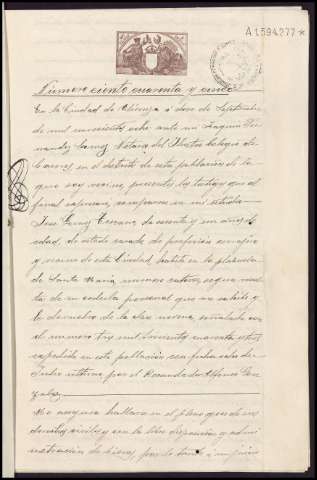 A1594277*
Número ciento cuarenta y cinco
En la Ciudad de Plasencia á doce de Septiembre
de mil novecientos ocho ante mí Joaquín
Notario del Ilustre Colegio de
Cáceres en el distrito de esta población de la
que soy vecino, presentes los testigos que al
final expresaré, comparece en mi estudio
José de sesenta y un años de
edad, de estado casado, de profesión
y vecino de esta Ciudad, habita en la plazuela
de Santa María número catorce, según
de su cédula personal que me exhibe y
la de la clase novena, señalada con
el número tres mil doscientos cuarenta y tres
expedida en esta población con fecha
Julio último por el Recaudador Alfonso Gon
zalez
Me asegura hallarse en el pleno goce de sus
derechos civiles y con la libre disposición y admi
nistración de bienes, por lo tanto á mi juicio